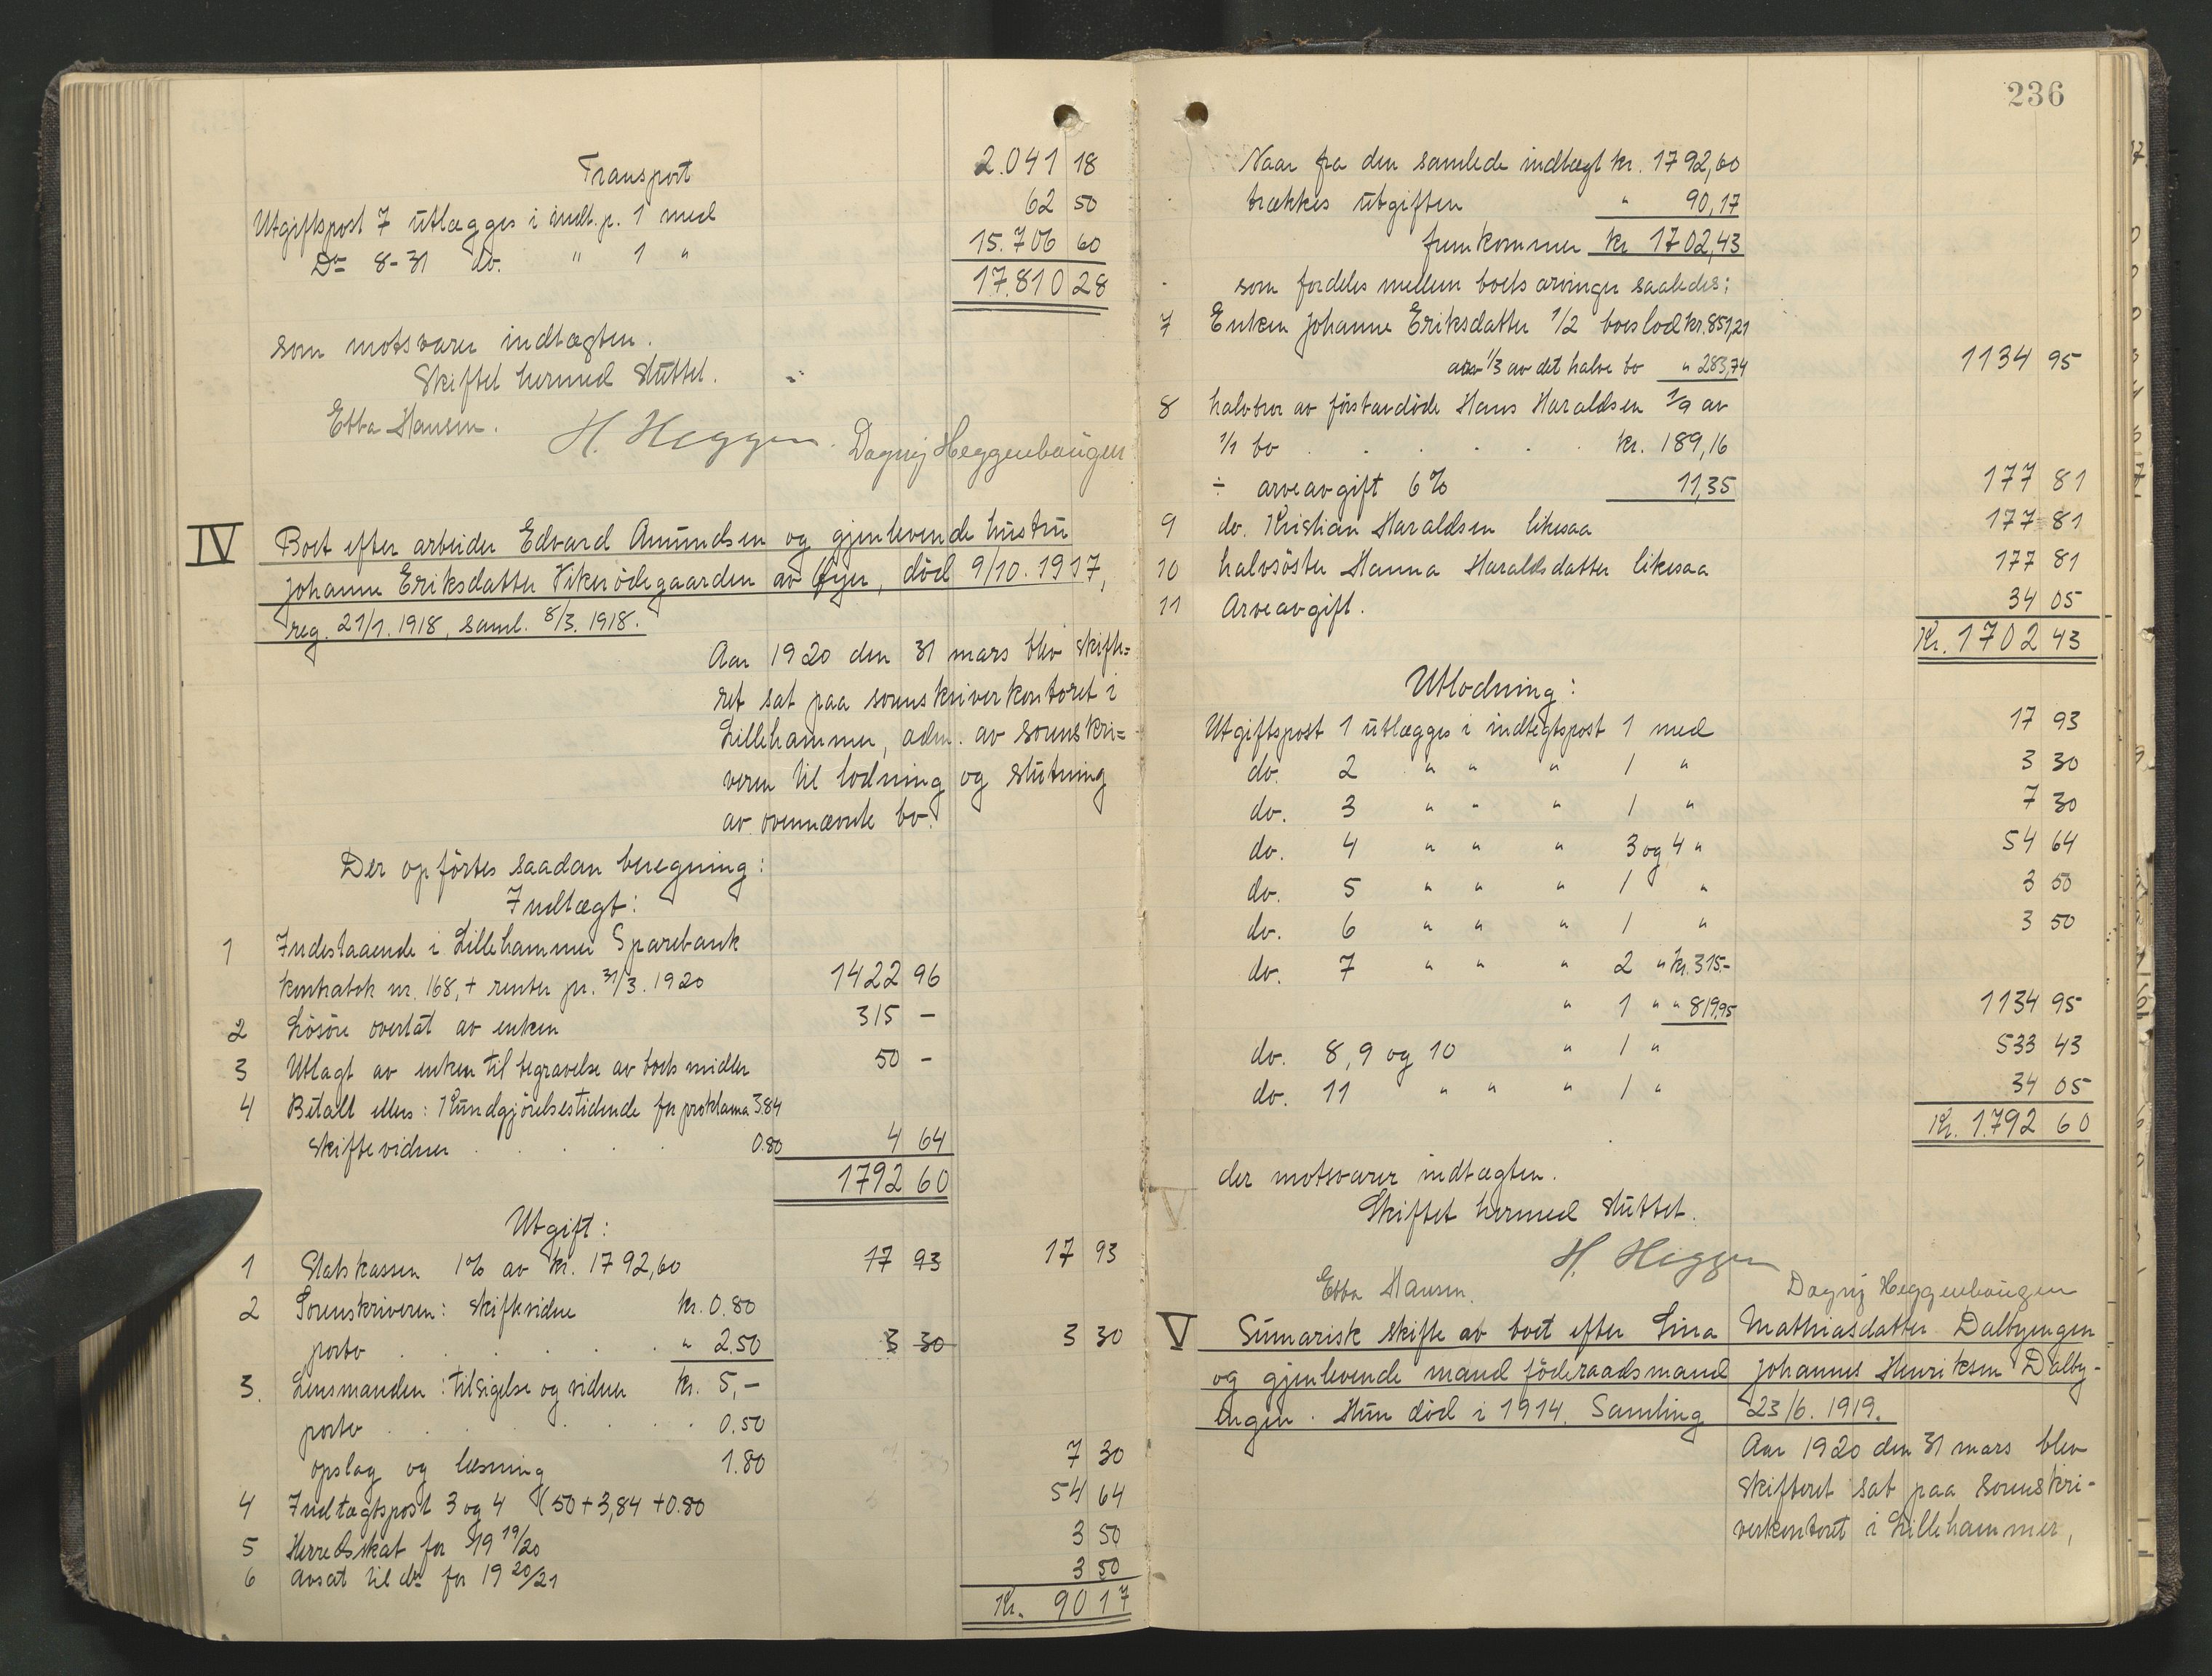 Transport 2.041 18
Utgiftspost 7 utlægges i indt.p. 1 med 62 50
Do 8-31 do. " 1 " 15.706 60
17.810 28
som motsvarer indtægten.
Skiftet hermed sluttet.
Ebba Hansen. H. Heggen. Dagny Heggenhaugen
IV Boet efter arbeider Edvard Amundsen og gjenlevende hustru
Johanne Eriksdatter Vikerødegaarden av Øyer, död 9/10.1917,
reg. 21/1.1918, saml. 8/3.1918.
Aar 1920 den 31 mars blev skifte=
ret sat paa sorenskriverkontoret i
Lillehammer, adm. av sorenskri=
veren til lodning og slutning
av ovennævnte bo.
Der opförtes saadan beregning:
Indtægt:
1 Indestaaende i Lillehammer Sparebank
kontrabok nr. 168, + renter pr. 31/3.1920 1422 96
2 Lösöre overtat av enken 315 -
3 Utlagt av enken til begravelse av boets midler 50 -
4 Betalt ellers: Kundgjörelsestidende for proklama 3.84
skiftevidner . . . . 0.80 4 64
1792 60
Utgift:
1 Statskassen 1% av kr. 1792,60 17 93 17 93
2 Sorenskriveren: skiftevidne kr. 0.80
porto . . . . . . " 2.50 3 30 3 30
3. Lensmanden: tilsigelse og vidner kr. 5,-
porto . . . . . . 0.50
opslag og læsning 1.80 7 30
4 Indtægtspost 3 og 4 (50 + 3,84 + 0.80 54 64
5 Herredsskat for 19 19/20 3 50
6 avsat til do for 19 20/21 3 50
Kr. 90 17
236
Naar fra den samlede indtægt kr. 1792,60
trækkes utgiften " 90,17
fremkommer kr 1702,43
som fordeles mellem boets arvinger saaledes:
7 Enken Johanne Eriksdatter 1/2 boeslod kr. 851,21
arv 1/3 av det halve bo " 283,74 1134 95
8 halvbror av förstavdöde Hans Haraldsen 1/9 av
1/1 bo . . . . . kr. 189,16
÷ arveavgift 6% 11,35 177 81
9 do. Kristian Haraldsen likesaa 177 81
10 halvsöster Hanna Haraldsdatter likesaa 177 81
11 Arveavgift. 34 05
Kr. 1702 43
Utlodning:
Utgiftspost 1 utlægges i indtegtspost 1 med 17 93
do. 2 " " " 1 " 3 30
do. 3 " " " 1 " 7 30
do. 4 " " " 3 og 4 " 54 64
do. 5 " " " 1 " 3 50
do. 6 " " " 1 " 3 50
do. 7 " " " 2 " kr. 315.-
" 1 " " 819.95 1134 95
do. 8, 9 og 10 " 1 " 533 43
do. 11 " " " 1 " 34 05
Kr. 1.792 60
der motsvarer indtægten.
Skiftet hermed sluttet.
H. Heggen
Ebba Hansen. Dagny Heggenhaugen
V Sumarisk skifte av boet efter Lina Mathiasdatter Dalbyengen
og gjenlevende mand föderaadsmand Johannes Henriksen Dalby-
engen. Hun död i 1914. Samling 23/6.1919.
Aar 1920 den 31 mars blev
skifteret sat paa sorenskri-
verkontoret i Lillehammer,